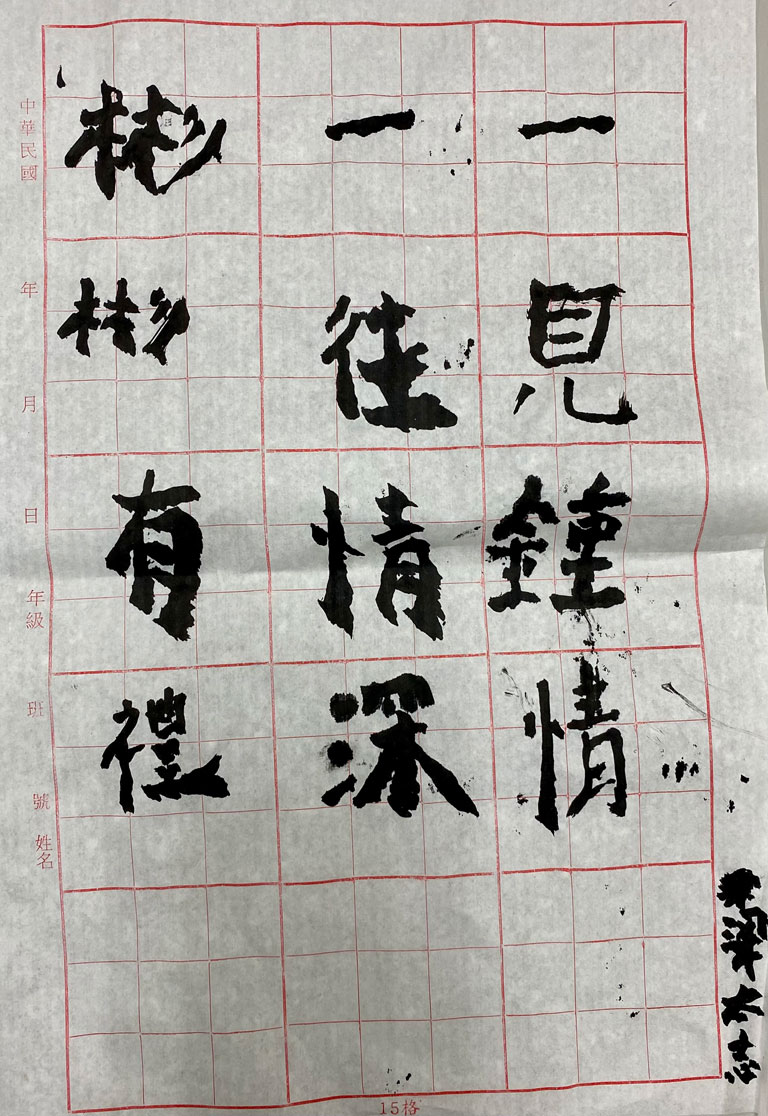 一見鍾情
一往情深
彬彬有禮
中華民國 年 月 日 年級 班 號 姓名
15格